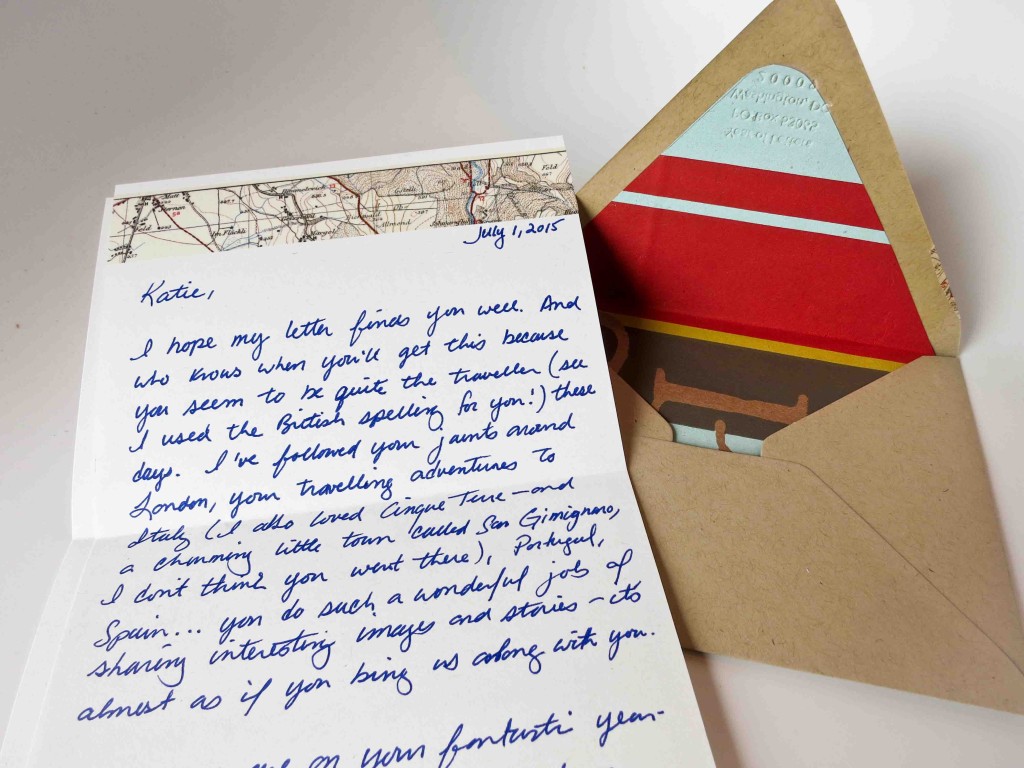 July 1, 2015
Katie,
I hope my letter finds you well. And
who knows when you'll get this because
you seem to be quite the traveller (see
I used the British spelling for you!) these
days. I've followed your jaunts around
London, your travelling adventures to
Italy (I also loved Cinque Terre - and
a charming little town called San Gimignano,
I don't think you went there), Portugal,
Spain... you do such a wonderful job of
sharing interesting images and stories - its
almost as if you bring us along with you.
on your fantastic year-
20008
Washington, DC
PO Box